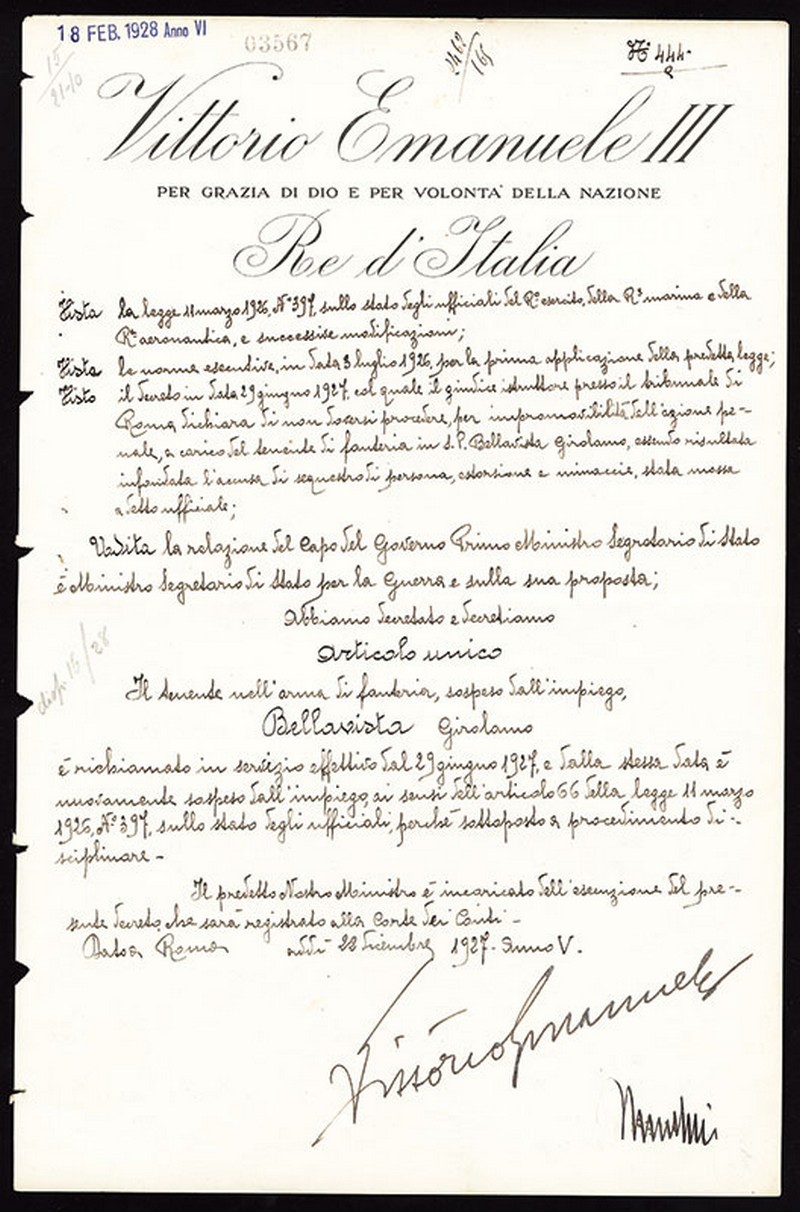 18 FEB. 1928 Anno VI
03567
N° 444.
15/21-10
Vittorio Emanuele III
PER GRAZIA DI DIO E PER VOLONTA' DELLA NAZIONE
Re d'Italia
Vista la legge 11 marzo 1926, N° 397, sullo stato degli ufficiali del R° esercito, della Rª marina e della
Rª aeronautica, e successive modificazioni;
Vista le norme esecutive, in data 3 luglio 1926, per la prima applicazione della predetta legge;
Visto il decreto in data 29 giugno 1927, col quale il giudice istruttore presso il tribunale di
Roma, dichiara di non doversi procedere, per impromovibilità dell'azione pe-
nale, a carico del tenente di fanteria in s.P. Bellavista Girolamo, essendo risultata
infondata l'accusa di sequestro di persona, estorsione e minaccie, stata mossa
a detto ufficiale;
Udita la relazione del Capo del Governo Primo Ministro Segretario di Stato
e Ministro Segretario di Stato per la Guerra e sulla sua proposta;
Abbiamo decretato e decretiamo
Articolo unico
Il tenente nell'arma di fanteria, sospeso dall'impiego,
Bellavista Girolamo
è richiamato in servizio effettivo dal 29 giugno 1927, e dalla stessa data è
nuovamente sospeso dall'impiego, ai sensi dell'articolo 66 della legge 11 marzo
1926, N° 397, sullo stato degli ufficiali, perchè sottoposto a procedimento di-
sciplinare -
Il predetto Nostro Ministro è incaricato dell'esecuzione del pre-
sente decreto, che sarà registrato alla Corte dei Conti -
Dato a Roma addì 22 dicembre 1927 - Anno V.
Vittorio Emanuele
Mussolini